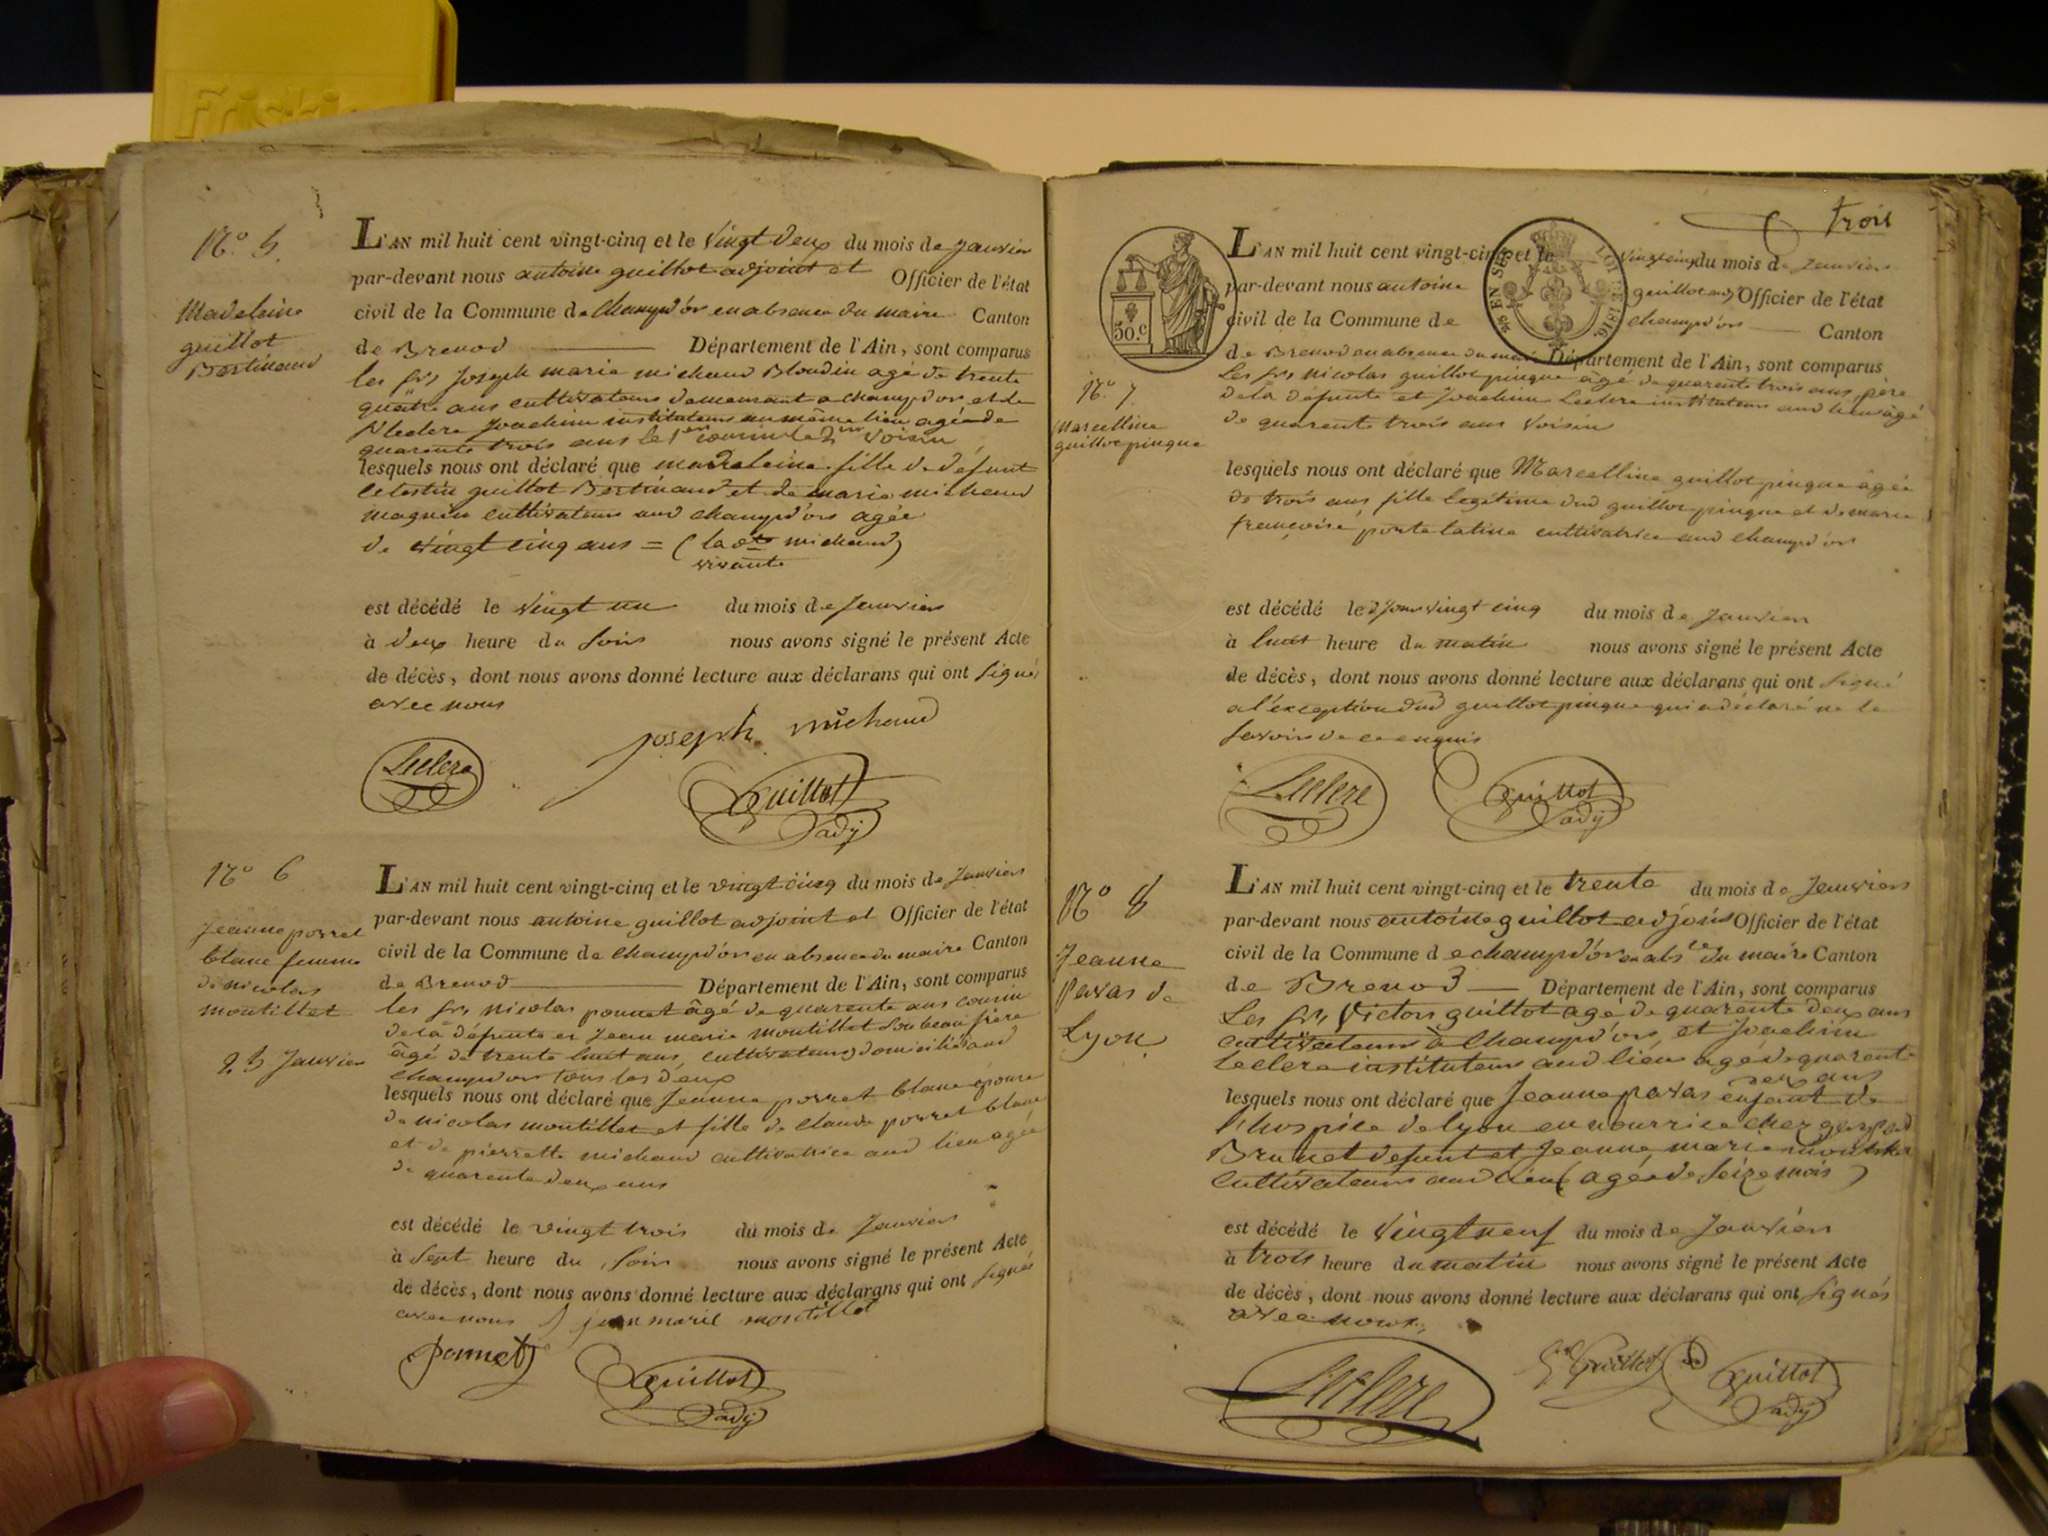 Friski
N.o 5.
Madeleine
guillot
Bertinand
L'AN mil huit cent vingt-cinq et le vingt deux du mois de Janvier
par-devant nous antoine guillot adjoint et Officier de l'état
civil de la Commune de champd'or en absence du maire Canton
de Brenod Département de l'Ain, sont comparus
les srs Joseph marie michaud Blondin agé de trente
quatre ans cultivateurs demeurant a champd'or et le
Sr leclere Joachim instituteur au même lieu agé de
quarante trois ans le 1er cousin le 2me voisin
lesquels nous ont déclaré que madeleine fille de défunt
Celestin guillot Bertinand et de marie michaud
magnin cultivateurs aud champd'or agée
de vingt cinq ans = (la dte michaud)
vivante
est décédé le vingt un du mois de Janvier
à deux heure du soir nous avons signé le présent Acte
de décès, dont nous avons donné lecture aux déclarans qui ont signés
avec nous
joseph michaud
Leclere
Guillot
adj
N.o 6
Jeanne porret
blanc femme
de nicolas
montillet
23 Janvier
L'AN mil huit cent vingt-cinq et le vingt cinq du mois de Janvier
par-devant nous antoine guillot adjoint et Officier de l'état
civil de la Commune de champd'or en absence du maire Canton
de Brenod Département de l'Ain, sont comparus
les srs nicolas ponnet âgé de quarente ans cousin
de la défunte et Jean marie montillet son beau frère
âgé de trente huit ans, cultivateurs domiciliés aud
champd'or tous les deux
lesquels nous ont déclaré que Jeanne porret blanc épouse
de nicolas montillet et fille de claude porret blanc
et de pierrette michaud cultivatrice aud lieu agée
de quarente deux ans
est décédé le vingt trois du mois de Janvier
à sept heure du soir nous avons signé le présent Acte
de décès, dont nous avons donné lecture aux déclarans qui ont signés
avec nous jean marie montillet
Ponnet
Guillot
adj
trois
50.c
EN SUS
LOI DE 1816
L'AN mil huit cent vingt-cinq et le vingt cinq du mois de Janvier
par-devant nous antoine guillot adj Officier de l'état
civil de la Commune de champd'or Canton
de Brenod en absence du maire Département de l'Ain, sont comparus
N.o 7.
Marcelline
guillot pingue
Les srs nicolas guillot pingue âgé de quarente trois ans père
de la défunte et Joachim Leclere instituteur aud lieu âgé
de quarente trois ans voisin
lesquels nous ont déclaré que Marcelline guillot pingue âgée
de trois ans fille legitime dud guillot pingue et de marie
françoise porte latine cultivatrice aud champd'or
est décédé le d jour vingt cinq du mois de Janvier
à huit heure du matin nous avons signé le présent Acte
de décès, dont nous avons donné lecture aux déclarans qui ont signé
a l'exception dud guillot pingue qui a déclaré ne le
savoir de ce enquis
Leclere
Guillot
adj
N.o 8
Jeanne
pavas de
Lyon
L'AN mil huit cent vingt-cinq et le trente du mois de Janvier
par-devant nous antoine guillot adjoint Officier de l'état
civil de la Commune de champd'or en abs.ce du maire Canton
de Brenod Département de l'Ain, sont comparus
Les srs Victor guillot agé de quarente deux ans
cultivateurs à Champd'or, et Joachim
leclere instituteur aud lieu agé de quarente
deux ans
lesquels nous ont déclaré que Jeanne pavas enfant de
l'hospice de lyon en nourrice chez
Brunet defunt et Jeanne marie
Cultivateurs aud lieu (agée de seize mois)
est décédé le vingt neuf du mois de Janvier
à trois heure du matin nous avons signé le présent Acte
de décès, dont nous avons donné lecture aux déclarans qui ont signés
avec nous
Leclere
Guillot
Guillot
adj